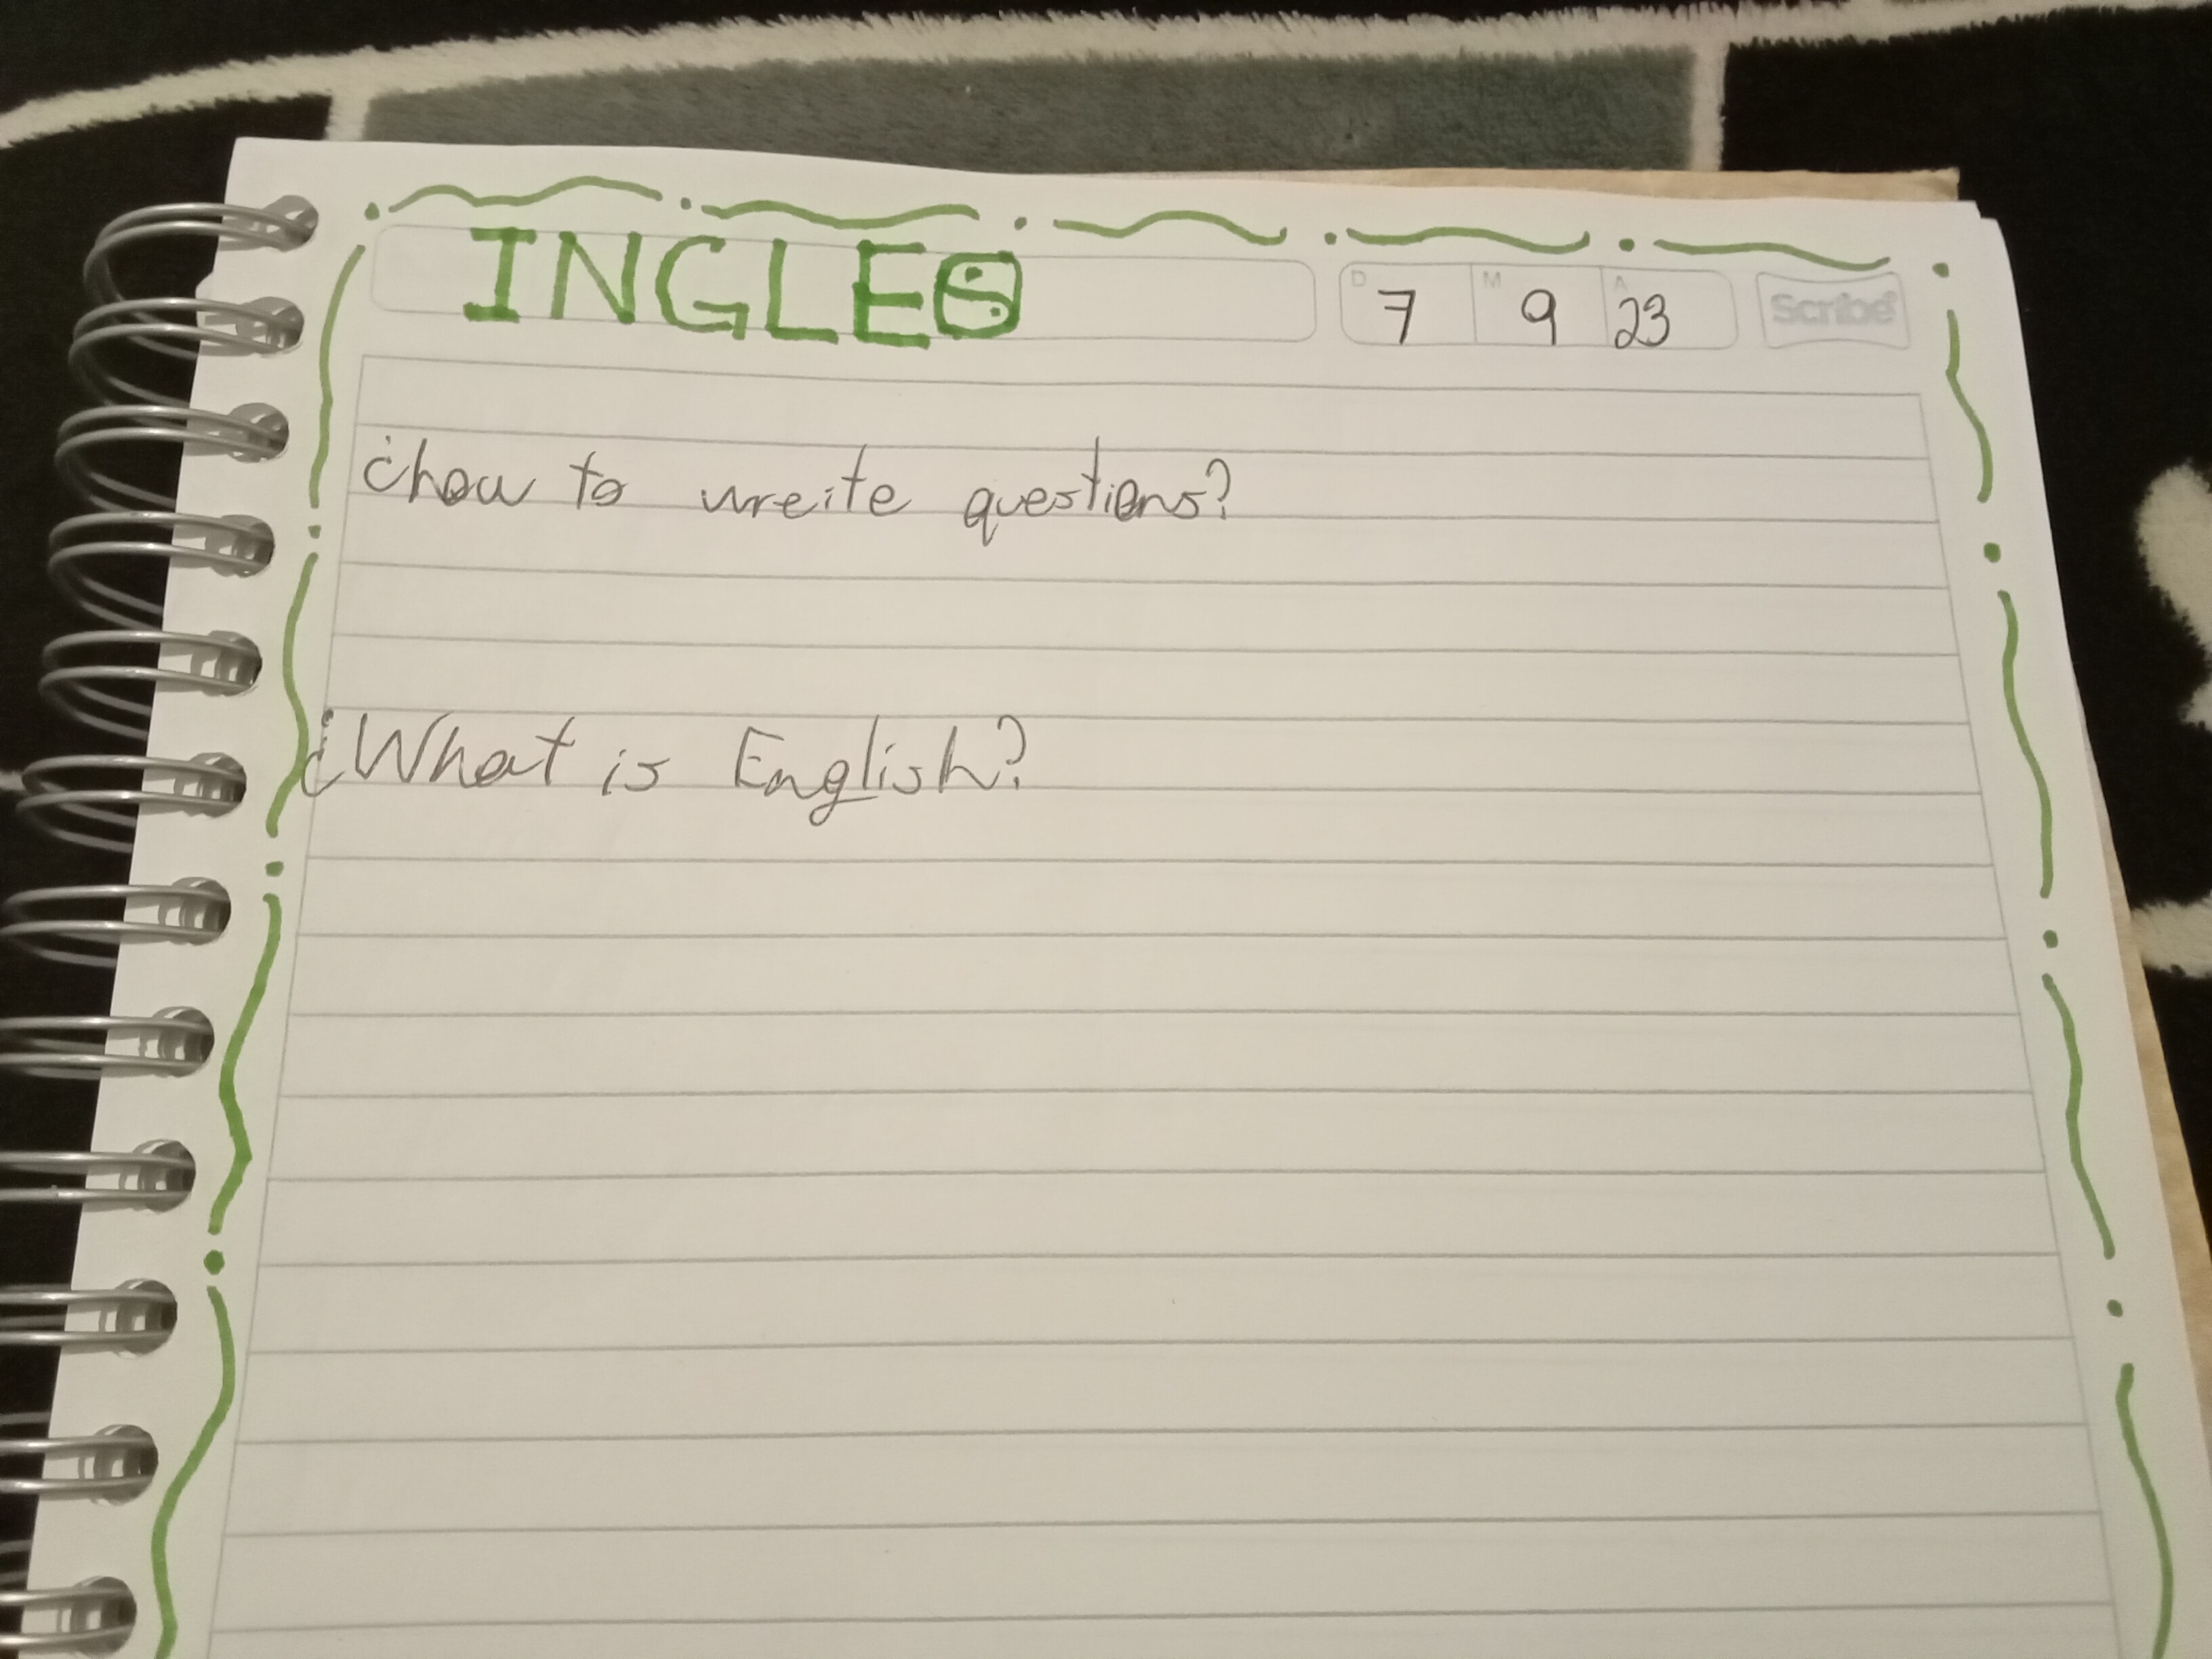 INGLES
D 7 M 9 A 23 Scribe
¿how to wreite questions?
¿What is English?